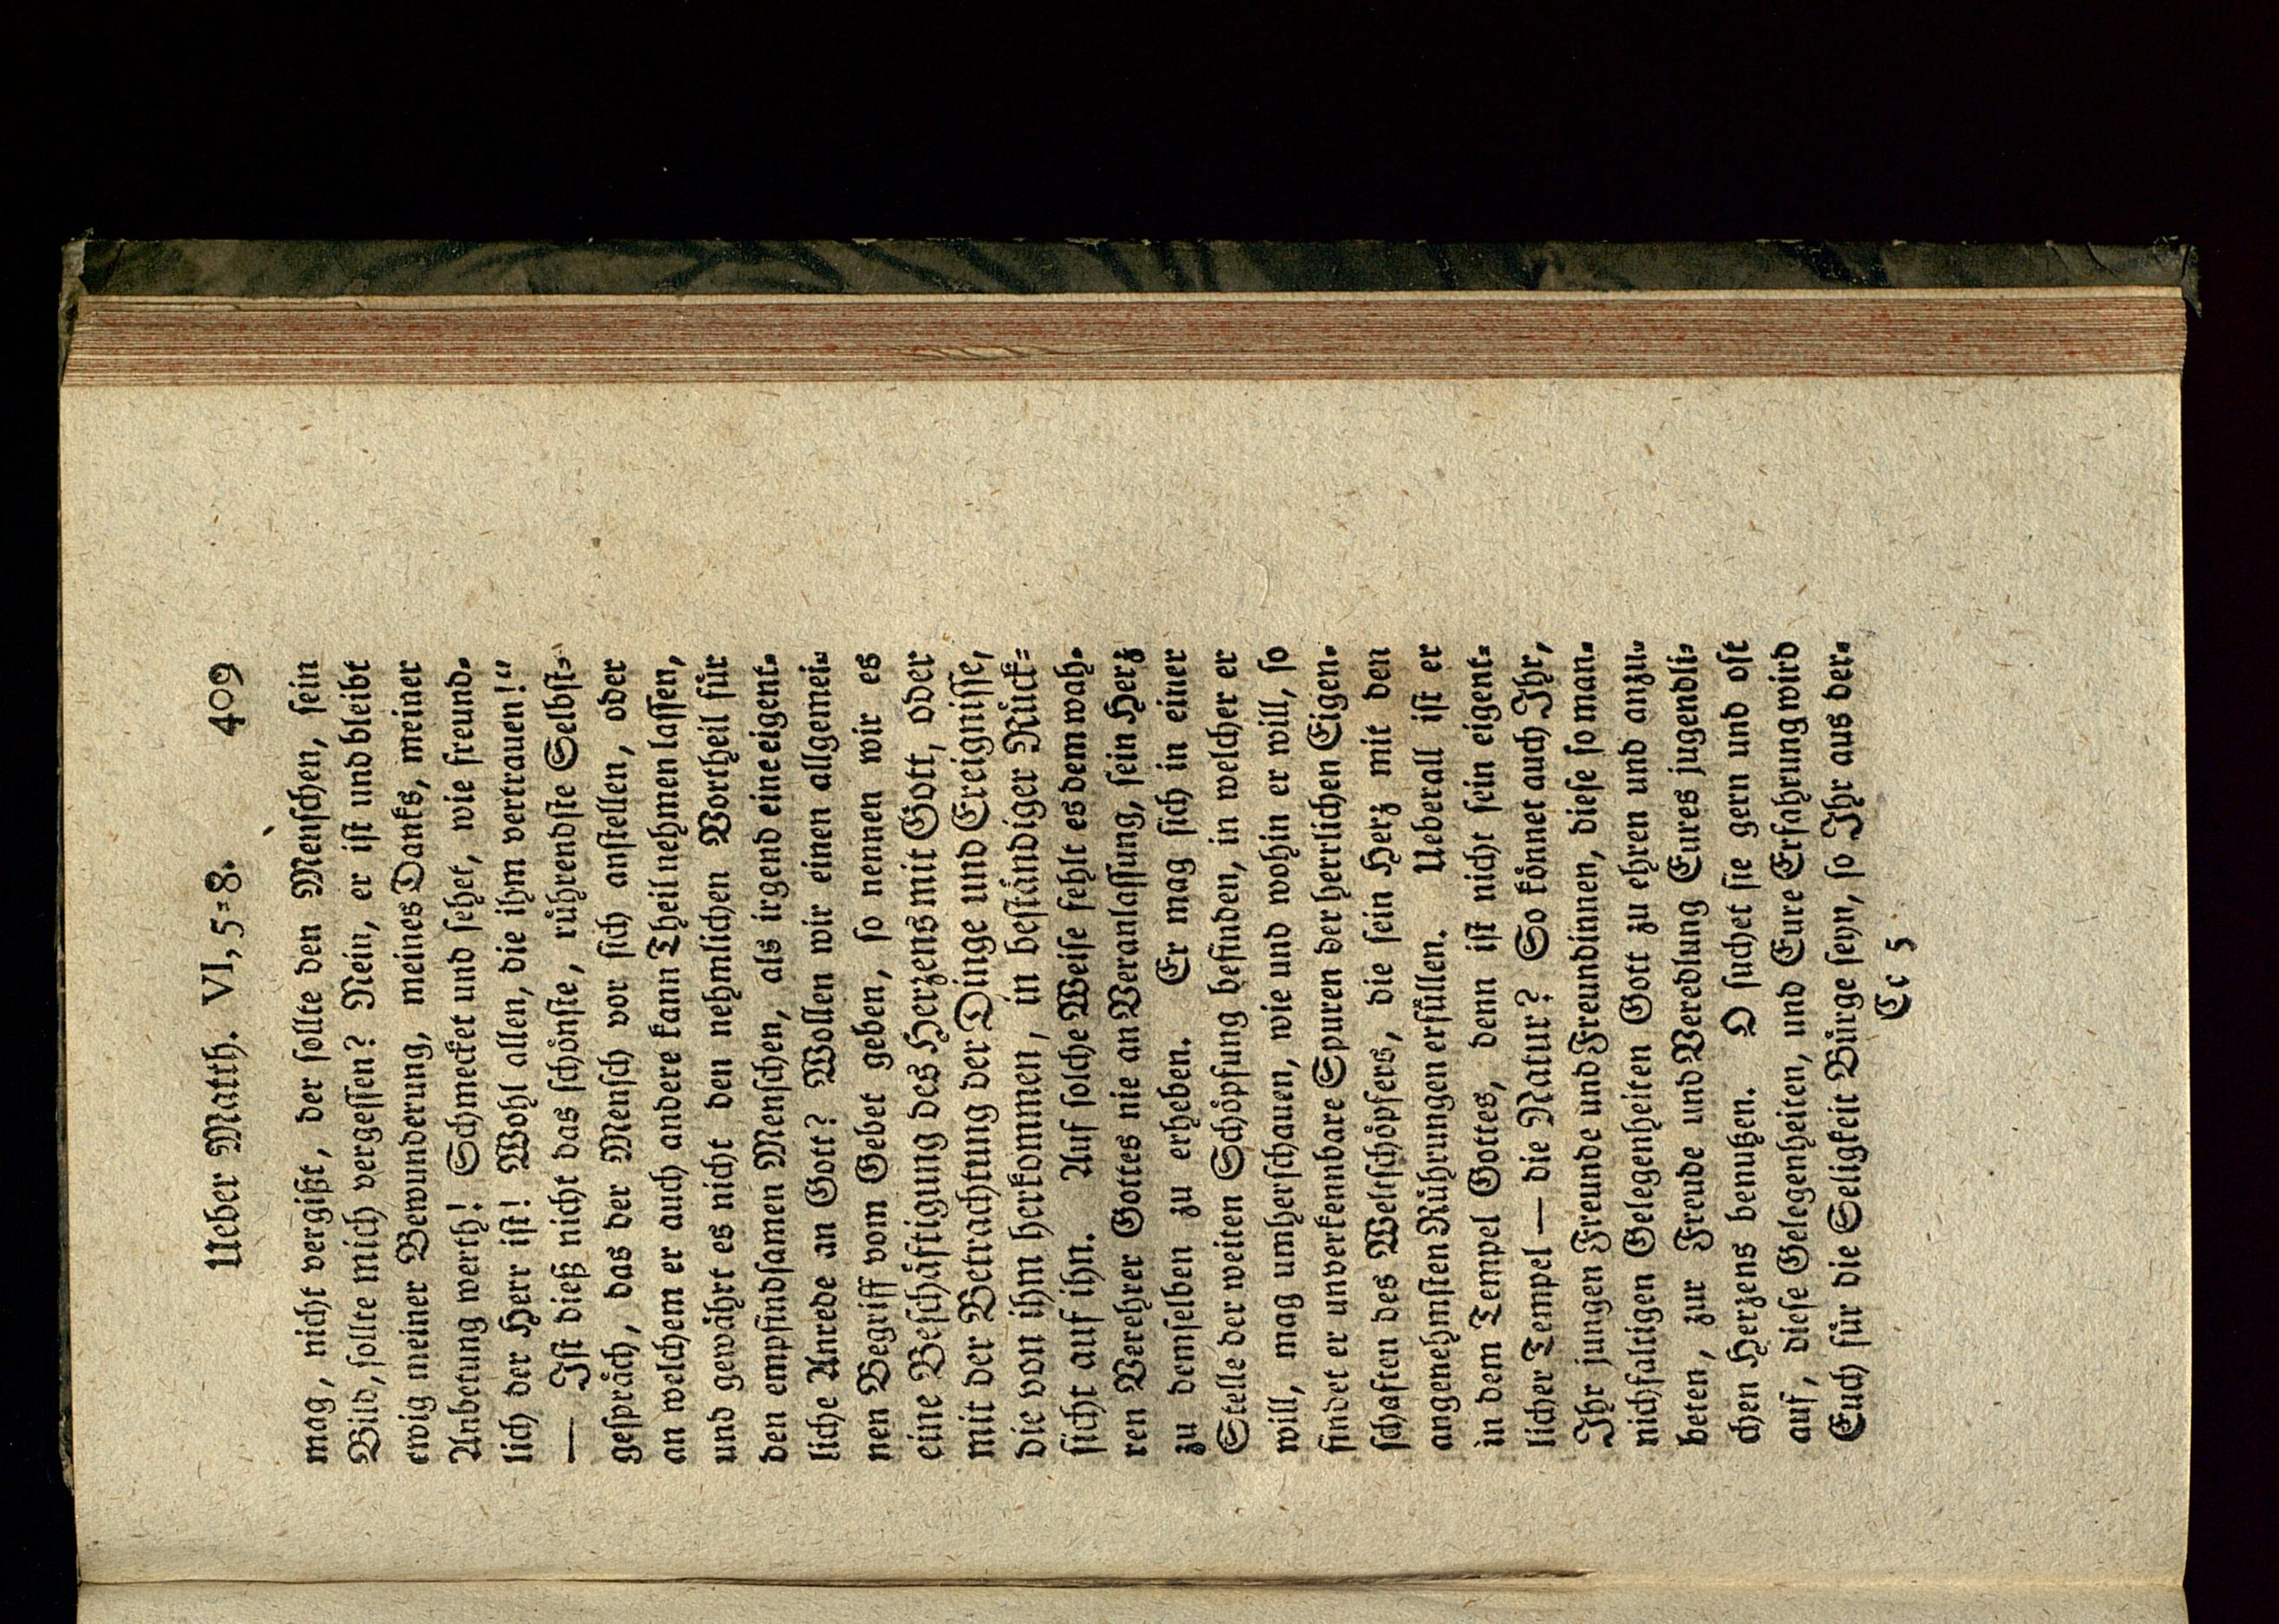 Ueber Matth. VI, 5=8. 409
mag, nicht vergißt, der ſollte den Menſchen, ſein
Bild, ſollte mich vergeſſen? Nein, er iſt und bleibt
ewig meiner Bewunderung, meines Danks, meiner
Anbetung werth! Schmecket und ſehet, wie freund=
lich der Herr iſt! Wohl allen, die ihm vertrauen!“
— Iſt dieß nicht das ſchönſte, rührendſte Selbſt=
geſpräch, das der Menſch vor ſich anſtellen, oder
an welchem er auch andere kann Theil nehmen laſſen,
und gewährt es nicht den nehmlichen Vortheil für
den empfindſamen Menſchen, als irgend eine eigent=
liche Anrede an Gott? Wollen wir einen allgemei=
nen Begriff vom Gebet geben, ſo nennen wir es
eine Beſchäftigung des Herzens mit Gott, oder
mit der Betrachtung der Dinge und Ereigniſſe,
die von ihm herkommen, in beſtändiger Rück=
ſicht auf ihn. Auf ſolche Weiſe fehlt es dem wah=
ren Verehrer Gottes nie an Veranlaſſung, ſein Herz
zu demſelben zu erheben. Er mag ſich in einer
Stelle der weiten Schöpfung befinden, in welcher er
will, mag umherſchauen, wie und wohin er will, ſo
findet er unverkennbare Spuren der herrlichen Eigen=
ſchaften des Weltſchöpfers, die ſein Herz mit den
angenehmſten Rührungen erfüllen. Ueberall iſt er
in dem Tempel Gottes, denn iſt nicht ſein eigent=
licher Tempel — die Natur? So könnet auch Ihr,
Ihr jungen Freunde und Freundinnen, dieſe ſo man=
nichfaltigen Gelegenheiten Gott zu ehren und anzu=
beten, zur Freude und Veredlung Eures jugendli=
chen Herzens benutzen. O ſuchet ſie gern und oft
auf, dieſe Gelegenheiten, und Eure Erfahrung wird
Euch für die Seligkeit Bürge ſeyn, ſo Ihr aus der=
Cc 5